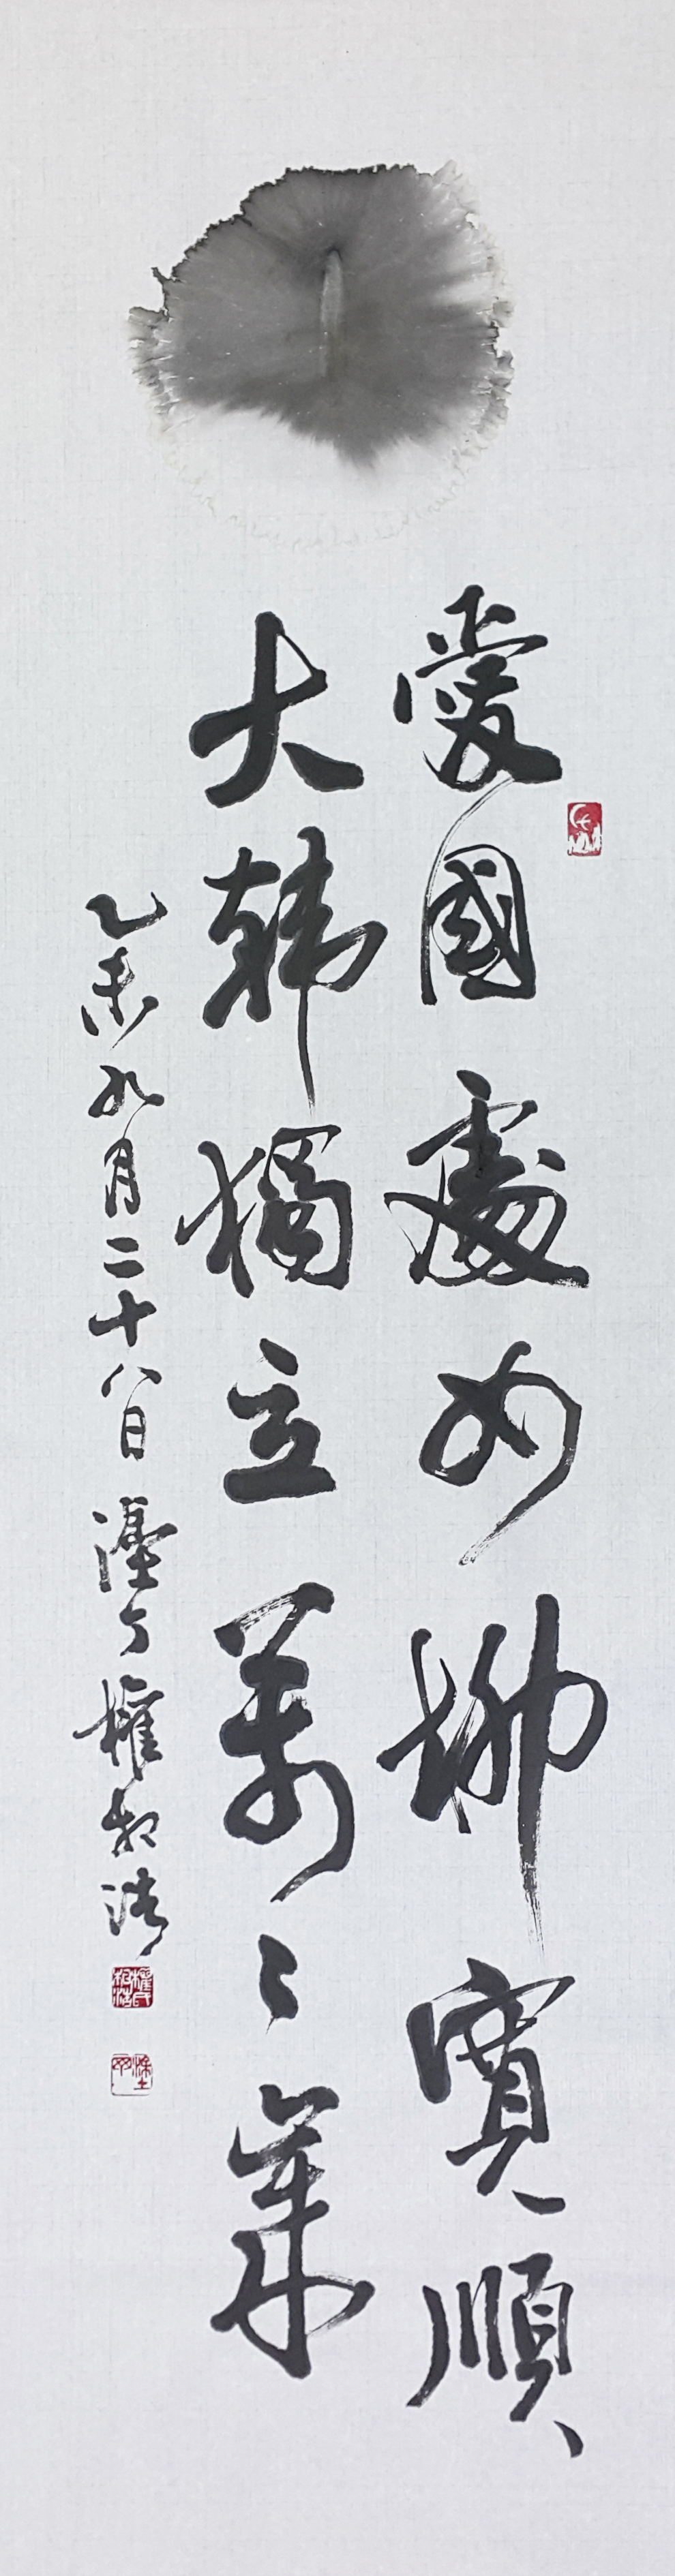 愛國處女柳寬順
大韓獨立萬〻歲
乙未九月二十八日 塗丁 權相浩